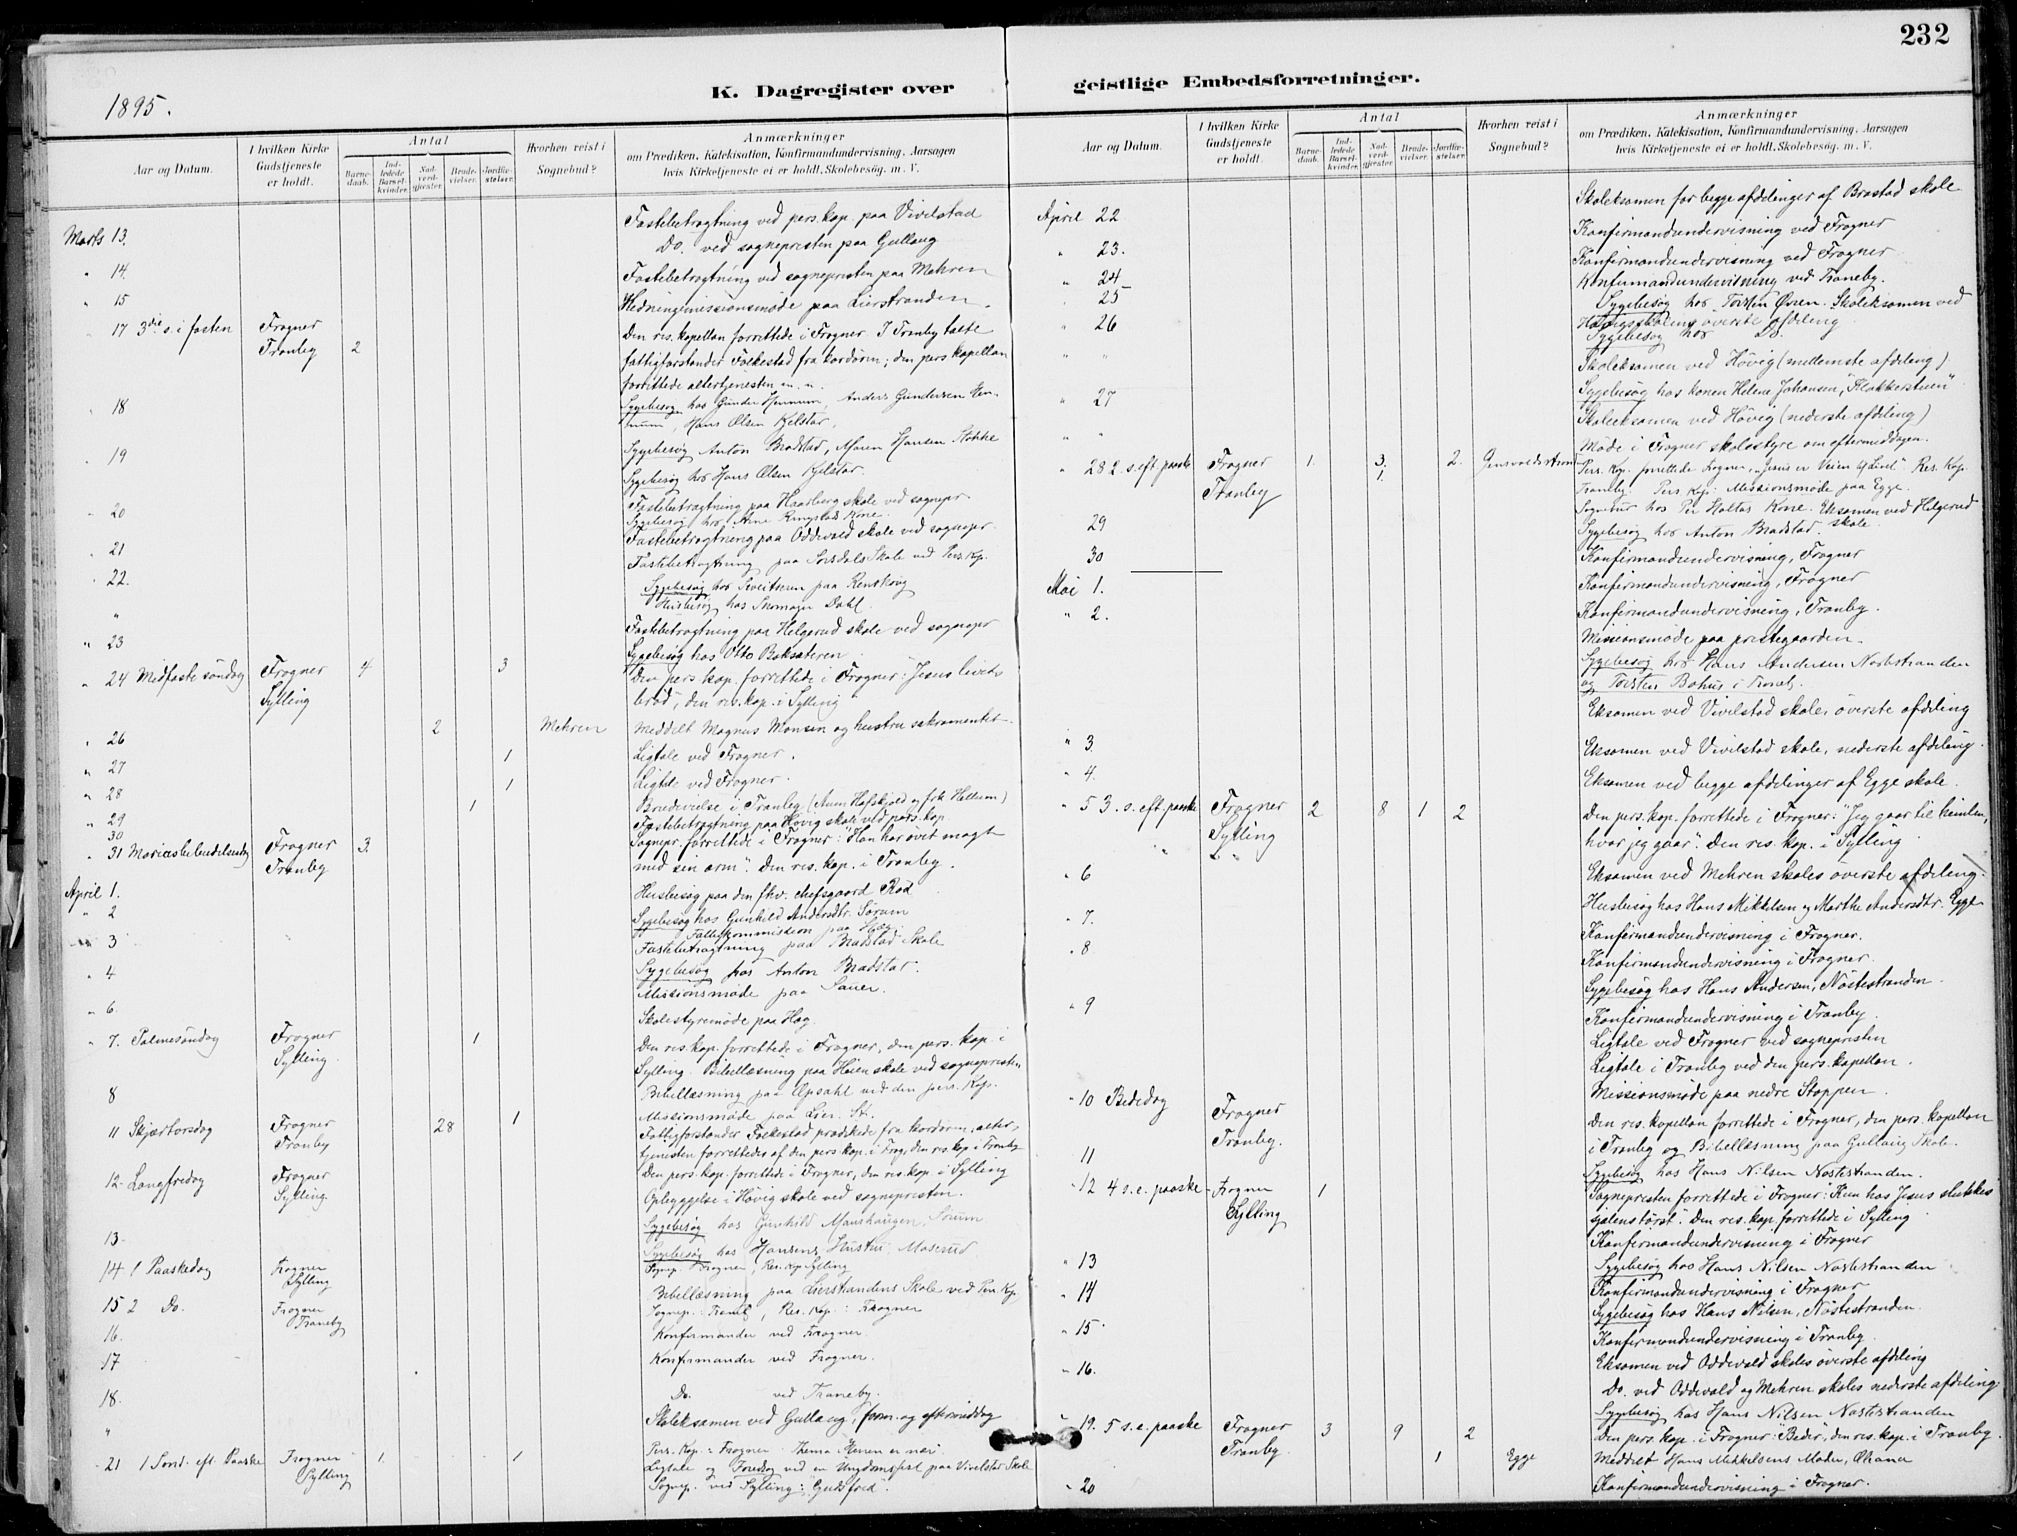 232
K. Dagregister over geistlige Embedsforretninger.
1895.
Aar og Datum.
I hvilken Kirke Gudstjeneste er holdt.
Antal
Barnedaab.
Indledede Barselkvinder.
Nadverdgjester.
Brudevielser.
Jordfæstelser.
Hvorhen reist i Sognebud?
Anmærkninger
om Prædiken, Katekisation, Konfirmandundervisning, Aarsagen
hvis Kirketjeneste ei er holdt, Skolebesøg. m. V.
Marts 13. Fastebetragtning ved pers. kap. paa Vivelstad
Do. ved sognepresten paa Gullaug
" 14. Fastebetragtning ved sognepresten paa Mehren
" 15 Hedningemissionsmøde paa Lierstranden.
" 17 3die s. i fasten Frogner Den res. kapellan forrettede i Frogner I Tranby talte
Tranby 2 fattigforstander Folkestad fra kordøren; den pers. kapellan
forrettede altertjenesten m. m.
" 18 Sygebesøg hos Gunder Hennum, Anders Gundersen Hen-
num, Hans Olsen Kjelstad,
" 19 Sygebesøg Anton Bradstad, Maren Hansen Stokke
Sygebesøg hos Hans Olsen Kjelstad.
" 20 Fastebetragtning paa Haarberg skole ved sognepr.
Sygebesøg hos Arne Ringstads Kone.
" 21 Fastebetragtning paa Oddevald skole ved sognepr.
" 22. Fastebetragtning paa Sørsdals Skole ved Pers. Kp.
Sygebesøg hos paa Renskoug
" Husbesøg hos Dahl.
" 23 Fastebetragtning paa Helgerud skole ved sognepr
Sygebesøg hos Otto Baksæteren
" 24 Midfaste søndag Frogner 4 3 Den pers. kap. forrettede i Frogner: Jesus livets
Sylling brød", den res. kap. i Sylling
" 26 2 Mehren Meddelt Magnus Monsen og hustru sakramentet
" 27 1 Ligtale ved Frogner.
" 28 1 Ligtale ved Frogner.
" 29 1 Brudevielse i Tranby (Aum Hafskjold og frk Hellum)
30 Fastebetragtning paa Høvig skole ved pers. kap.
" 31 Mariæ bebudelsesdag Frogner 3. Sognepr. forrettede i Frogner: "Han har øvet magt
Tranby med sin arm". Den res. kap. i Tranby.
April 1. Husbesøg paa den fhv. chefsgaard Rød
" 2 Sygebesøg hos Gunhild Andersdtr. Sørum
Fattigkommission paa Hæg
" 3 Fastebetragtning paa Bradstad Skole
" 4 Sygebesøg hos Anton Bradstad.
Missionsmøde paa Sauer.
" 6. Skolestyremøde paa Høg.
" 7. Palmesøndag Frogner 1 Den res. kap. forrettede i Frogner, den pers. kap. i
Sylling. Sylling. Bibellæsning paa Høien skole ved sognepresten
8 Bibellæsning paa Opsahl ved den pers. Kap.
1 Missionsmøde paa Lier. St.
11 Skjærtorsdag Frogner 28 Fattigforstander Folkestad prædikede fra kordøren, alter-
Tranby tjenesten forrettedes af den pers. kap. i Frog., den res. kap. i Tranby
12. Langfredag Frogner Den pers. kap. forrettede i Frogner, den res. kap. i Sylling
Sylling. Opbyggelse i Høvig skole ved sognepresten.
Sygebesøg hos Gunhild Maushaugen, Sørum
13. Sygebesøg hos Hansens Hustru, Moserud
14 1 Paaskedag Frogner Sognep. Frogner, Res. Kp. Sylling
Sylling Bibellæsning paa Lierstrandens Skole ved Per. Kp.
15 2 Do. Frogner Sognep. : Tranby, Res. Kap. : Frogner
Traneby
16. Konfirmander ved Frogner.
17 Konfirmander ved Frogner.
18. Do. ved Traneby.
" Skoleksamen ved Gullaug, form. og eftermiddag
" 21 1 Sønd. eft. Paaske Frogner 1. 1 Pers. Kap. : Frogner Thema Herren er nær.
Sylling Ligtale og Foredrag ved en Ungdomsfest paa Vivelstad Skole
Sognep. ved Sylling: "Gudsfred".
Aar og Datum.
I hvilken Kirke Gudstjeneste er holdt.
Antal
Barnedaab.
Indledede Barselkvinder.
Nadverdgjester.
Brudevielser.
Jordfæstelser.
Hvorhen reist i Sognebud?
Anmærkninger
om Prædiken, Katekisation, Konfirmandundervisning, Aarsagen
hvis Kirketjeneste ei er holdt, Skolebesøg. m. V.
April 22 Skoleksamen for begge afdelinger af Brastad skole
" 23. Konfirmandundervisning ved Frogner
" 24 Konfirmandundervisning ved Frogner
" 25 Konfirmandundervisning ved Traneby.
Sygebesøg hos Torsten Øvsen. Skoleksamen ved
" 26 øverste afdeling
Sygebesøg hos Do.
" " Skoleksamen ved Høvig (mellemste afdeling)
" 27 Sygebesøg hos konen Helene Johansen, "Flakkerstuen"
Skoleksamen ved Høvig (nederste afdeling)
" " Møde i Frogner skolestyre om eftermiddagen.
" 28 2. s. eft. paaske Frogner 1. 3. 2. Pers. Kp. forrettede Frogner, "Jesus er Veien til Livet" Res. Kap.
Tranby 1. Tranby. Pers. Kap. Missionsmøde paa Egge.
" 29 Sognebud hos Per Holtas Kone. Eksamen ved Helgerud skole
Sygebesøg hos Anton Bradstad.
30 Konfirmandundervisning, Frogner
Mai 1. Konfirmandundervisning, Frogner
" 2. Konfirmandundervisning, Tranby.
Missionsmøde paa prestegaarden.
Sygebesøg hos Hans Andersen Nøstestranden
og Torsten Bohus i Traneb.
Eksamen ved Vivelstad skole, øverste afdeling
" 3. Eksamen ved Vivelstad skole, nederste afdeling.
" 4. Eksamen ved begge afdelinger af Egge skole.
" 5 3. s. eft. paaske Frogner 2 8 1 2 Den pers. kap. forrettede i Frogner: "Jeg gaar til himlen,
Sylling hvor jeg gaar". Den res. kap. i Sylling
" 6 Eksamen ved Mehren skoles øverste afdeling.
" 7. Husbesøg hos Hans Mikkelsen og Marthe Andersdtr. Egge
Konfirmandundervisning i Frogner.
" 8 Konfirmandundervisning i Frogner.
Sygebesøg hos Hans Andersen, Nøstestranden.
" 9 Konfirmandundervisning i Tranby.
Ligtale ved Frogner ved sognepresten
Ligtale i Tranby ved den pers. kapellan.
Missionsmøde paa nedre Stoppen.
" 10 Bededag Frogner Den res. kapellan forrettede i Frogner, den pers. kapellan
Tranby. i Tranby og Bibellæsning paa Gullaug Skole.
11 Sygebesøg hos Hans Nilsen Nøstestranden.
" 12 4 s. e. paaske Frogner 1 Sognepresten forrettede i Frogner: "Kun hos Jesus slukkes
Sylling sjælens tørst". Den res. kap. forrettede i Sylling
Konfirmandundervisning i Frogner
" 13 Sygebesøg hos Hans Nilsen Nøstestranden
" 14 Konfirmandundervisning i Frogner
Sygebesøg hos Hans Nilsen, Nøstestranden.
" 15 Konfirmandundervisning i Tranby.
Eksamen ved Oddevald skoles øverste afdeling
" 16. Do. ved Oddevald og Mehren skoles nederste afdeling.
Sygebesøg hos Hans Nilsen Nøstestranden
" 19. 5 s. e. paaske Frogner 3 9 2 Den pers. kap. i Frogner: "Beder", den res. kap. i Tranby.
Tranby. 1 Egge Meddelt Hans Mikkelsens Moder, Oliana
" 20 Konfirmandundervisning i Frogner.